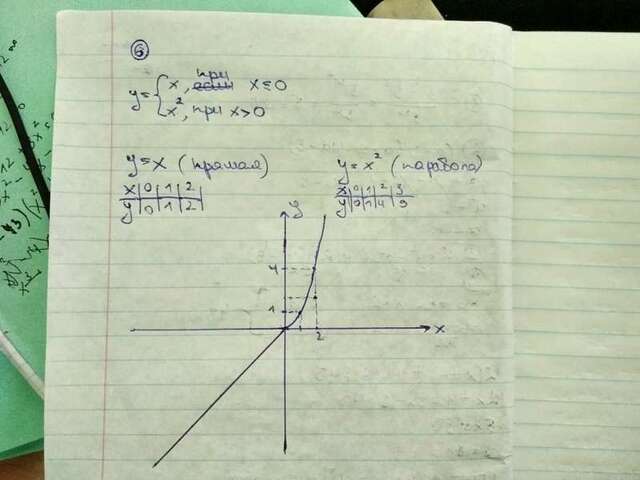 6
y = { x, при если x ≤ 0
x², при x > 0
y = x (прямая)
x | 0 | 1 | 2 |
y | 0 | 1 | 2 |
y = x² (парабола)
x | 0 | 1 | 2 | 3
y | 0 | 1 | 4 | 9
y
4
1
x
2